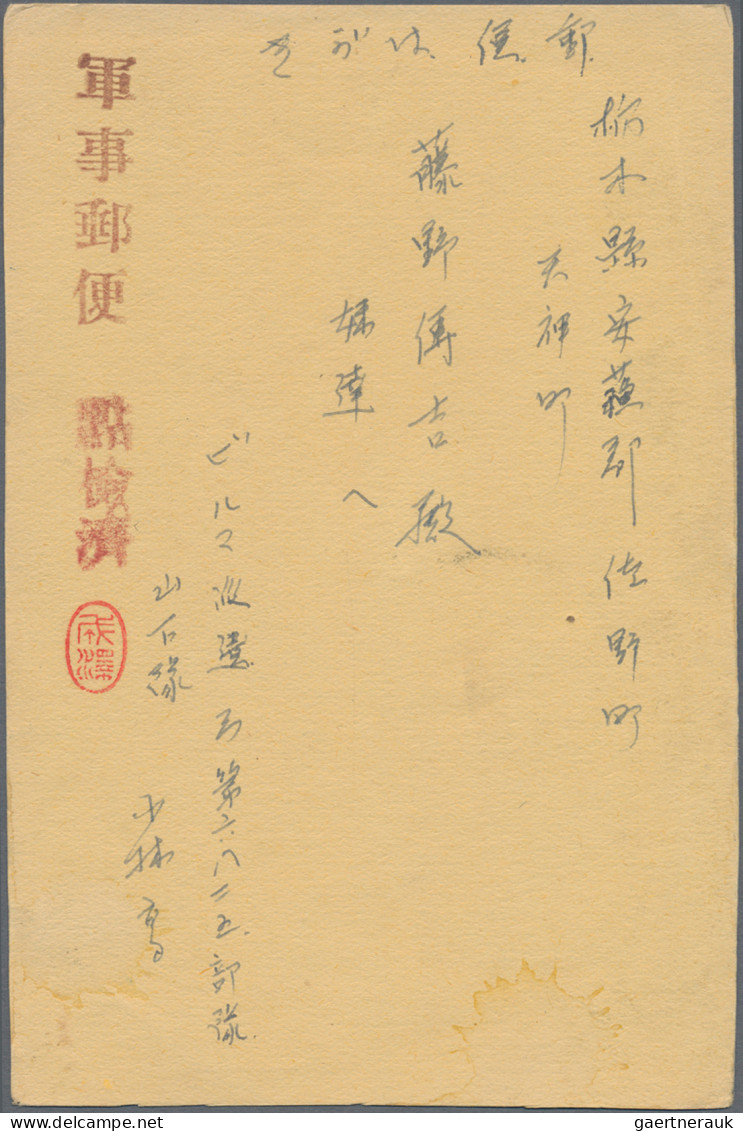 郵便はがき
栃木縣安蘇郡佐野町
天神町
藤野傳吉殿
妹達へ
ビルマ派遣 第六八二五部隊
山石隊
小林
軍事郵便
點檢濟
gaertnerauk